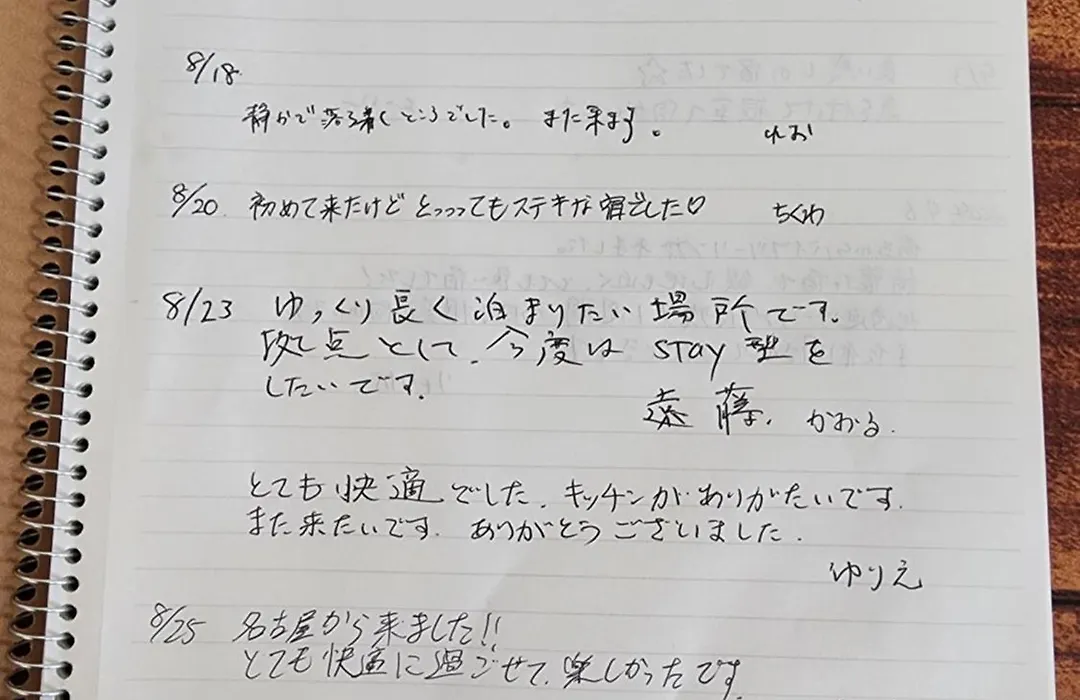 8/18
静かで落ち着くところでした。また来ます。 れお
8/20. 初めて来たけどとっっってもステキな宿でした♡ ちくわ
8/23 ゆっくり長く泊まりたい場所です。
拠点として、今度は stay 型を
したいです。
遠藤、かおる.
とても快適でした. キッチンがありがたいです.
また来たいです. ありがとうございました.
ゆりえ
8/25 名古屋から来ました!!
とても快適に過ごせて、楽しかったです